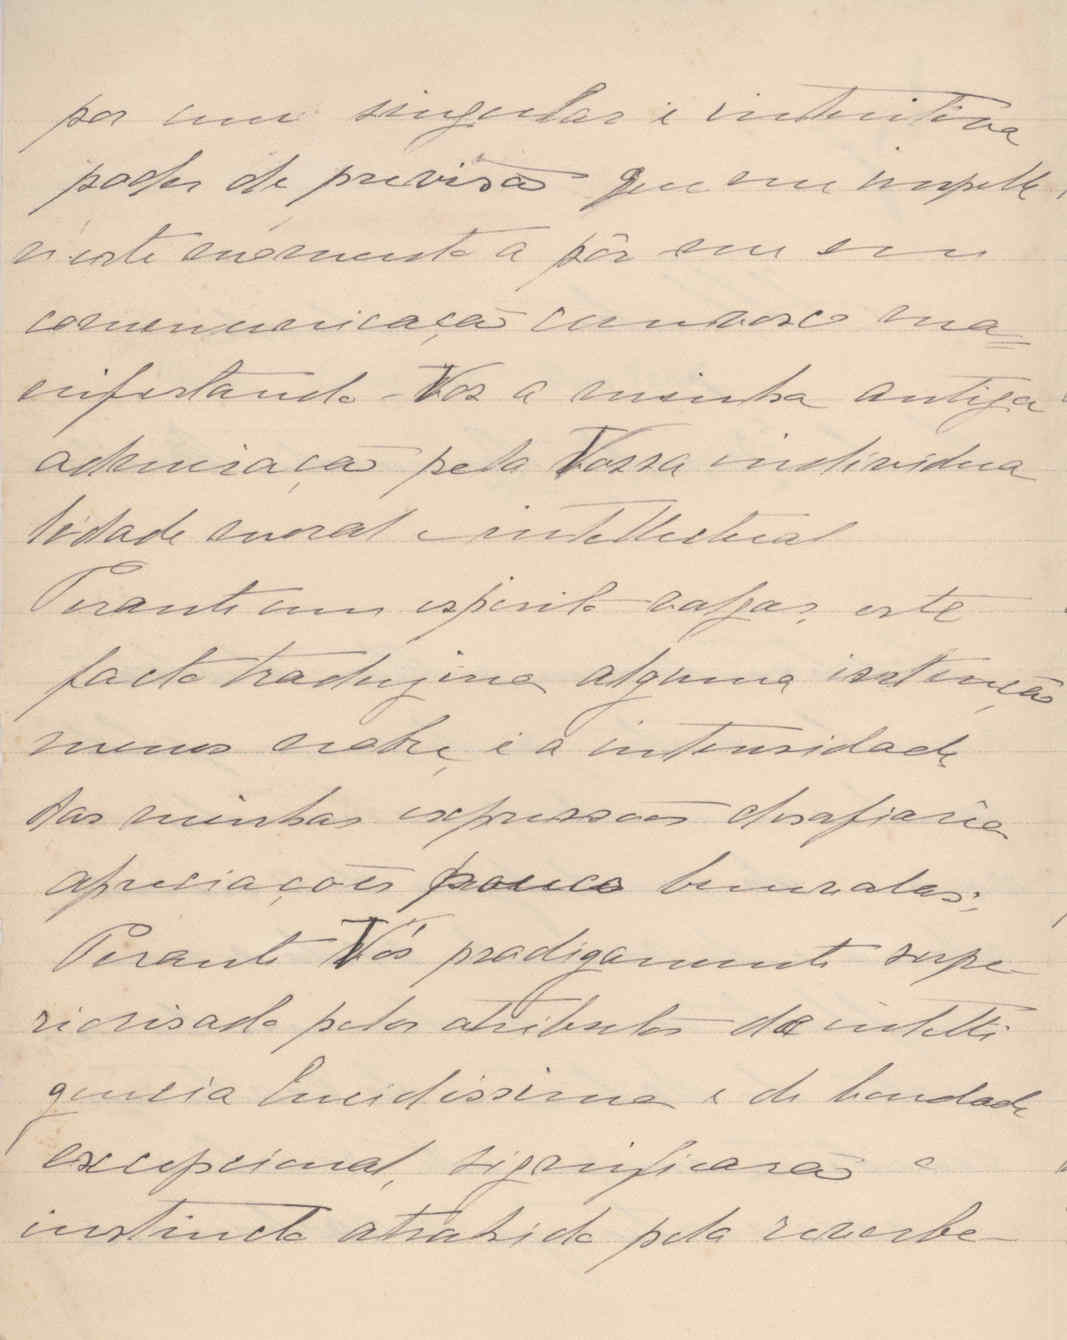 por um singular e intuitivo
poder de previsão que me impelle
n'este momento a pôr me em
communicação comvosco ma=
nifestando-Vos a minha antiga
admiração pela Vossa individua
lidade moral e intellectual
Perante um espirito vulgar, este
facto traduziria alguma intenção
menos nobre, e a intensidade
das minhas expressões desafiaria
apreciações pouco benevolas;
Perante Vós prodigamente supe-
riorisado pelos atributos de intelli
gencia lucidissima e de bondade
excepcional, significarão o
instincto atrahido pela reverbe-